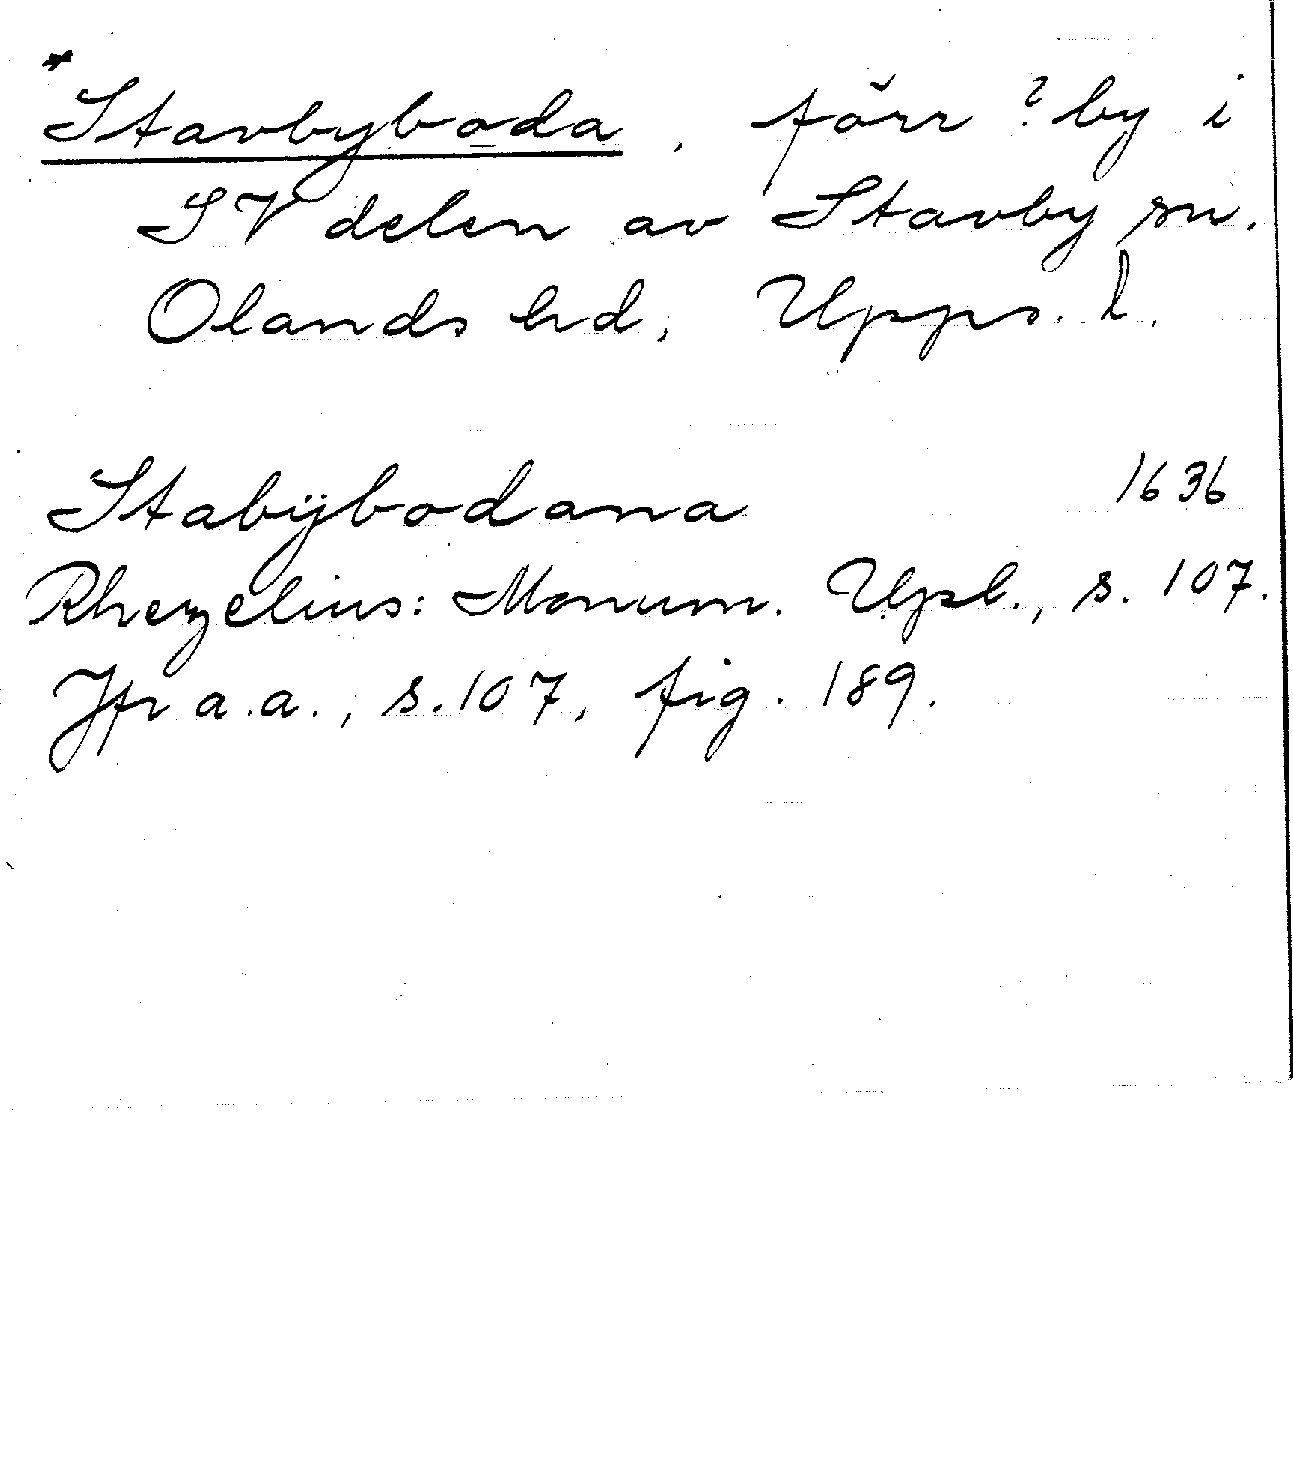 *
Stavbyboda, förr ? by i
SV delen av Stavby sn.
Olands hd, Upps. l.
Stabÿbodana 1636
Rhezelius: Monum. Upl., s. 107.
Jfr a.a., s. 107, fig. 189.